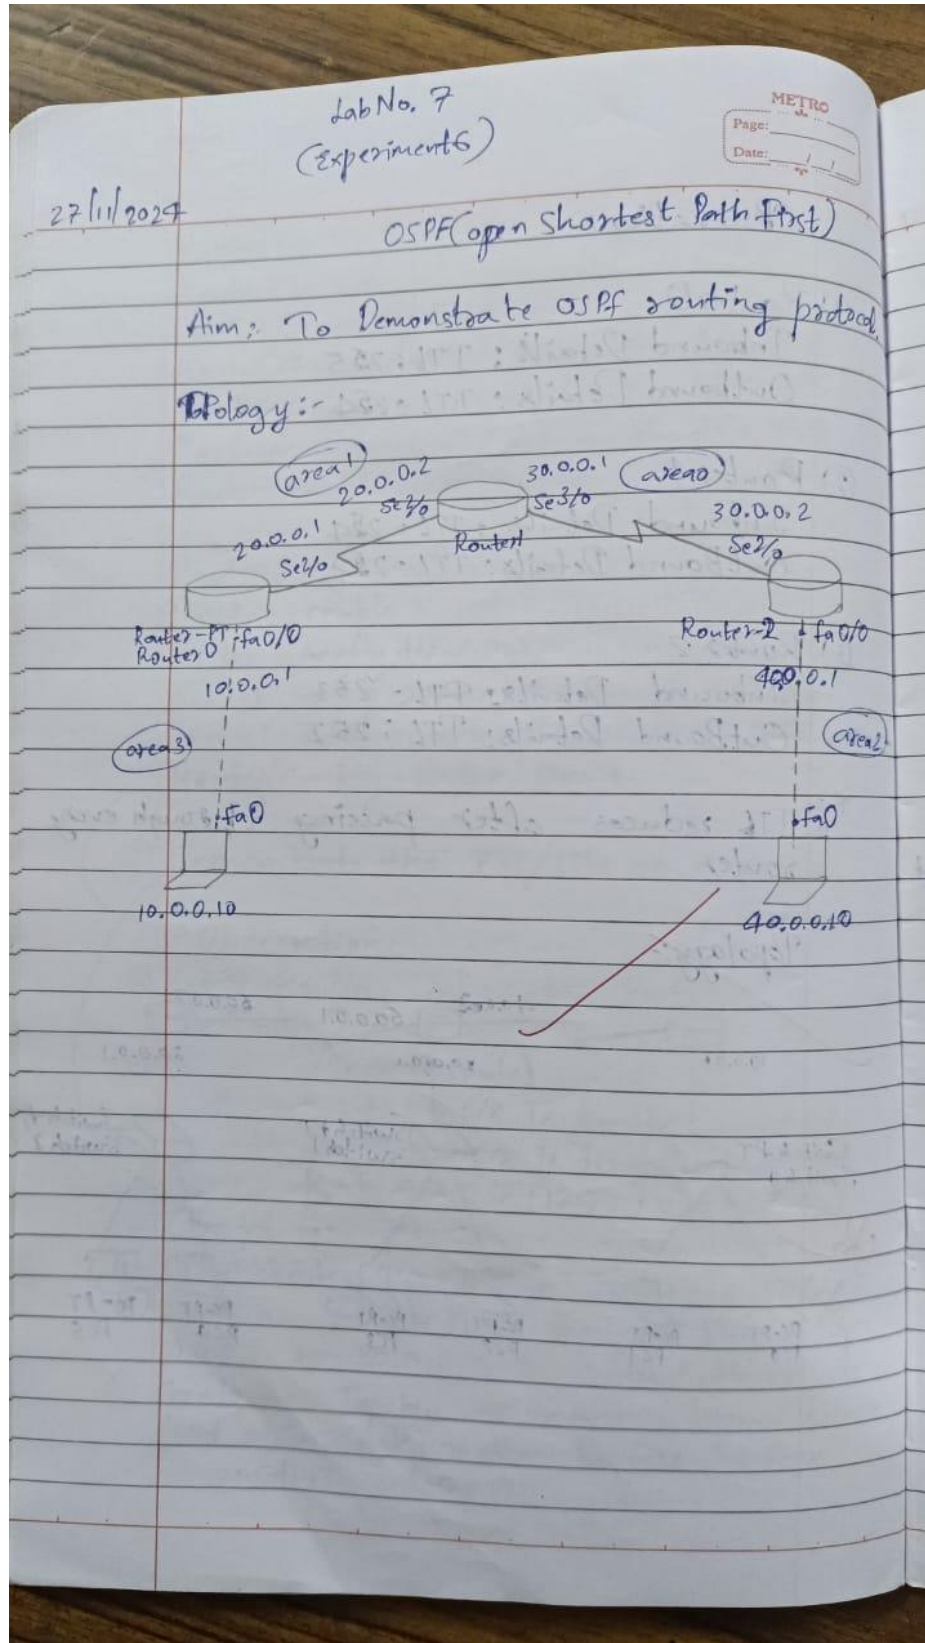 Lab No. 7
(Experiment 6)
METRO
Page:
Date:
27/11/2024
OSPF (open Shortest Path First)
Aim: To Demonstrate OSPF routing protocol.
Topology:-
area 1
20.0.0.2
30.0.0.1
area 0
Se2/0
Se3/0
30.0.0.2
20.0.0.1
Router1
Se2/0
Se2/0
Router-PT
fa0/0
Router-2
fa0/0
Router 0
10.0.0.1
40.0.0.1
area 3
area 2
fa0
fa0
10.0.0.10
40.0.0.10